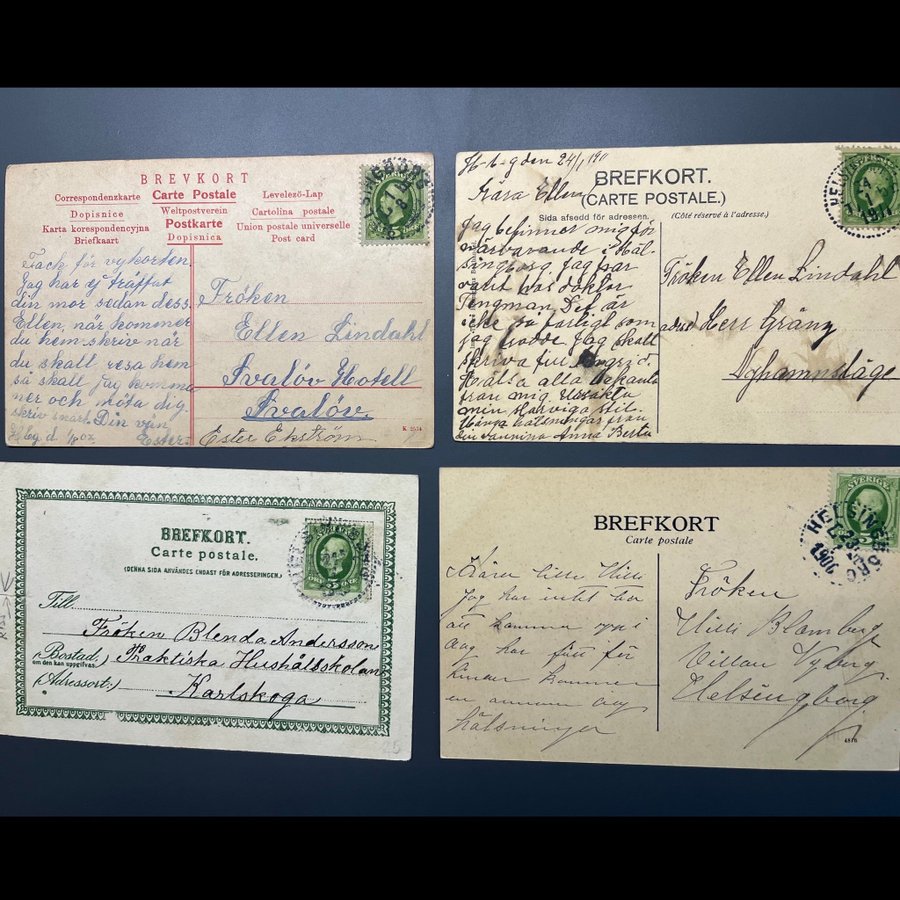 BREVKORT
Correspondenzkarte Carte Postale Levelező-Lap
Dopisnice Weltpostverein Cartolina postale
Karta korespondencyjna Postkarte Union postale universelle
Briefkaart Dopisnica Post card
Tack för vykorten
Jag har ej träffat
din mor sedan dess
Ellen, när kommer
du hem skriv när
du skall resa hem
så skall jag komma
ner och möta dig.
skriv snart. Din vän
Hbg. d. Ester
Ester Ekström
Fröken
Ellen Lindahl
Svalöv Hotell
Svalöv.
K 2554
H-b-g den 24/1 1911
BREFKORT.
(CARTE POSTALE.)
Sida afsedd för adressen. (Côté réservé à l'adresse.)
Kära Ellen
Jag befinner mig för
närvarande i Häl-
singborg. Jag har
varit hos doktor
Tengman. Det är
icke så farligt som
jag trodde Jag skall
skriva till
Hälsa alla bekanta
från mig. Ursäkta
min slarviga stil.
Många hälsningar från
din väninna Anna Berta
Fröken Ellen Lindahl
adrs. Herr Gränz
Nyhamnsläge
HELSINGBORG
24
1
1911
SVERIGE
BREFKORT.
Carte postale.
(DENNA SIDA ANVÄNDES ENDAST FÖR ADRESSERINGEN.)
Till
Fröken Blenda Andersson
(Bostad, om den kan uppgifvas.) Praktiska Hushållsskolan
(Adressort:) Karlskoga
25
BREFKORT
Carte postale
Kära lilla Willi
Jag har intet tid
att komma upp i
dag har fått för
kunder kommer
en annan dag
hälsningar
Fröken
Willi Blomberg
Villan Nyberg.
Helsingborg
4816
SVERIGE
HELSINGBORG
23
190